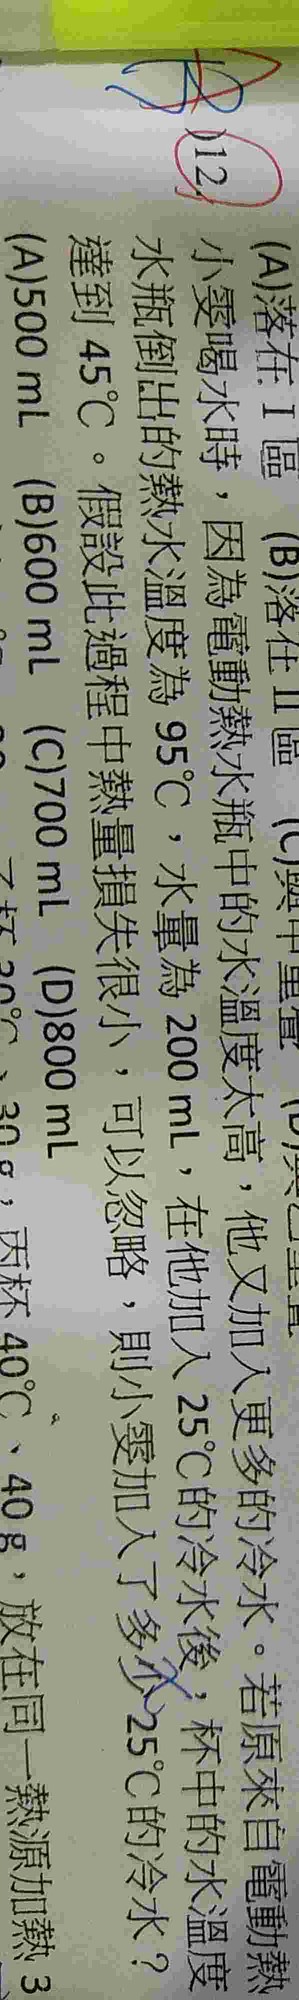 (A)落在 I 區 (B)落在 II 區
B )12. 小雯喝水時，因為電動熱水瓶中的水溫度太高，他又加入更多的冷水。若原來自電動熱
水瓶倒出的熱水溫度為 95℃，水量為 200 mL，在他加入 25℃的冷水後，杯中的水溫度
達到 45℃。假設此過程中熱量損失很小，可以忽略，則小雯加入了多少 25℃的冷水？
(A)500 mL (B)600 mL (C)700 mL (D)800 mL
30℃、30 g，丙杯 40℃、40 g，放在同一熱源加熱 3